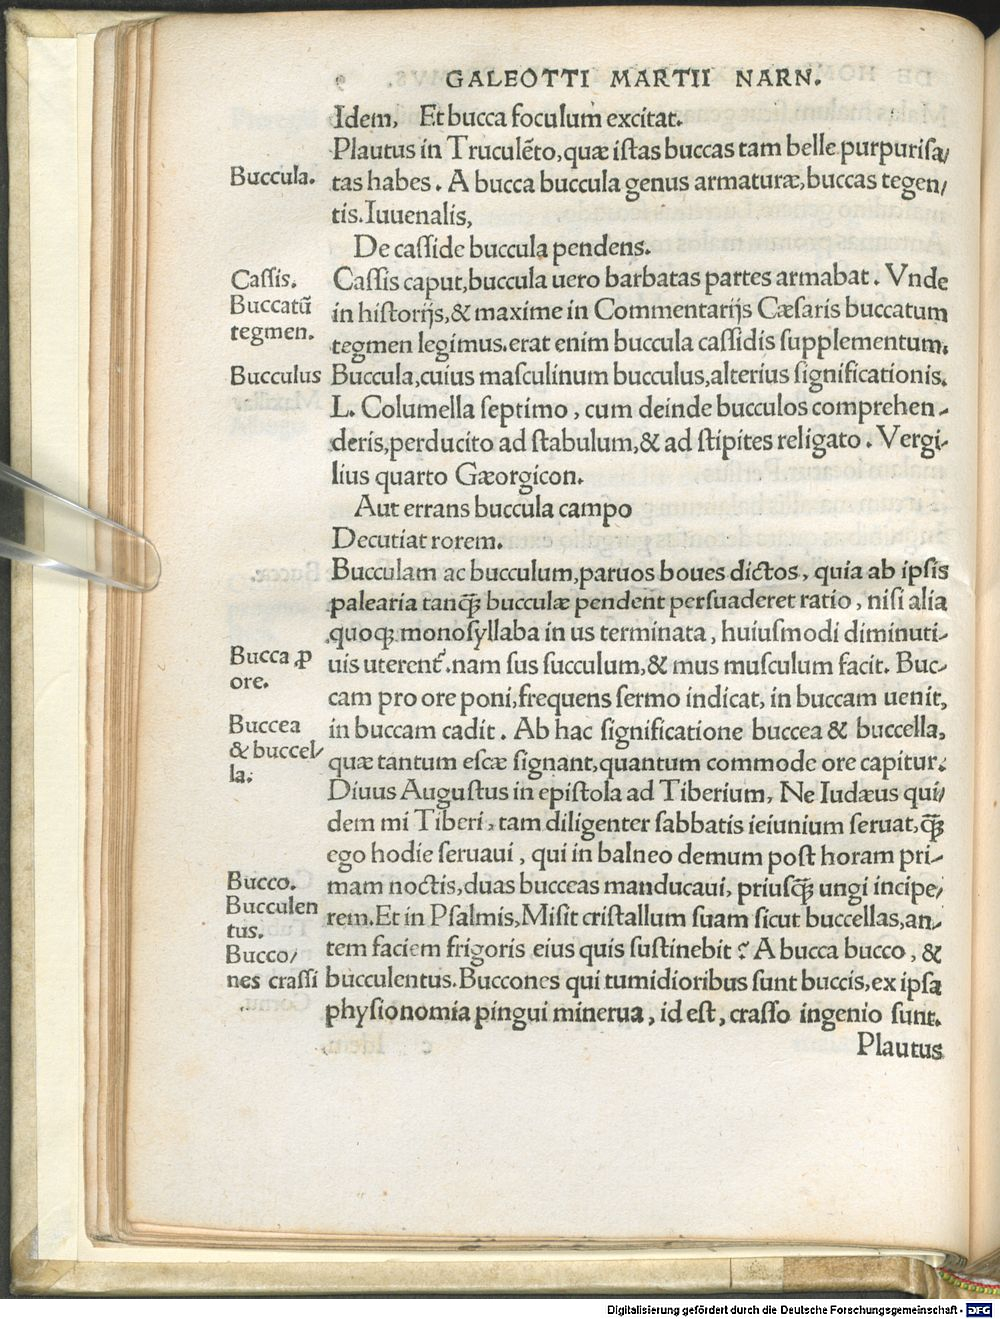 GALEOTTI MARTII NARN.
Idem, Et bucca foculum excitat.
Plautus in Truculẽto,quæ iſtas buccas tam belle purpuriſa/
Buccula.
tas habes. A bucca buccula genus armaturæ,buccas tegen/
tis.Iuuenalis,
De caſſide buccula pendens.
Caſſis.
Caſſis caput,buccula uero barbatas partes armabat. Vnde
Buccatũ
in hiſtorijs,& maxime in Commentarijs Cæſaris buccatum
tegmen.
tegmen legimus.erat enim buccula caſſidis ſupplementum.
Bucculus
Buccula,cuius maſculinum bucculus,alterius ſignificationis.
L. Columella ſeptimo, cum deinde bucculos comprehen-
deris,perducito ad ſtabulum,& ad ſtipites religato. Vergi-
lius quarto Gæorgicon.
Aut errans buccula campo
Decutiat rorem.
Bucculam ac bucculum,paruos boues dictos, quia ab ipſis
palearia tanꝗ̃ bucculæ pendent perſuaderet ratio, niſi alia
quoqꝫ monoſyllaba in us terminata, huiuſmodi diminuti-
Bucca ꝓ
uis uterent᷑.nam ſus ſucculum,& mus muſculum facit. Buc-
ore.
cam pro ore poni,frequens ſermo indicat, in buccam uenit,
Buccea
in buccam cadit. Ab hac ſignificatione buccea & buccella,
& buccel/
quæ tantum eſcæ ſignant,quantum commode ore capitur.
la.
Diuus Auguſtus in epiſtola ad Tiberium, Ne Iudæus qui/
dem mi Tiberi, tam diligenter ſabbatis ieiunium ſeruat,ꝗ̃
ego hodie ſeruaui, qui in balneo demum poſt horam pri-
Bucco.
mam noctis,duas bucceas manducaui, priuſꝗ̃ ungi incipe/
Bucculen
rem.Et in Pſalmis,Miſit criſtallum ſuam ſicut buccellas,an-
tus.
tem faciem frigoris eius quis ſuſtinebit? A bucca bucco, &
Bucco/
nes craſſi
bucculentus.Buccones qui tumidioribus ſunt buccis,ex ipſa
phyſionomia pingui minerua, id eſt, craſſo ingenio ſunt.
Plautus
Digitalisierung gefördert durch die Deutsche Forschungsgemeinschaft - DFG